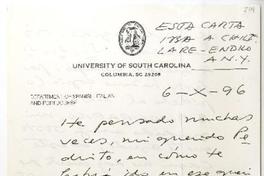 ESTA CARTA
IBA A CHILE.
LA RE-ENVIO
A N.Y.
UNIVERSITY OF SOUTH CAROLINA
COLUMBIA, SC 29208
DEPARTMENT OF SPANISH, ITALIAN,
AND PORTUGUESE
6-X-96
He pensado muchas
veces, mi querido Pe-
drito, en cómo te
habrá ido en ese